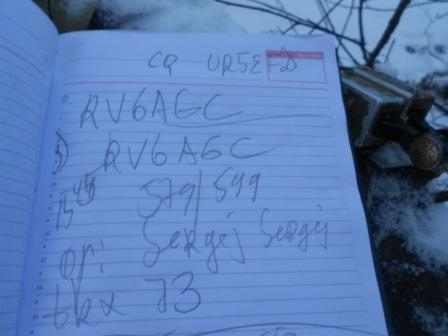 CQ UR5EFD
RV6AGC
5) RV6AGC
15 45 579/599
op: Sergej Sergej
tkx 73